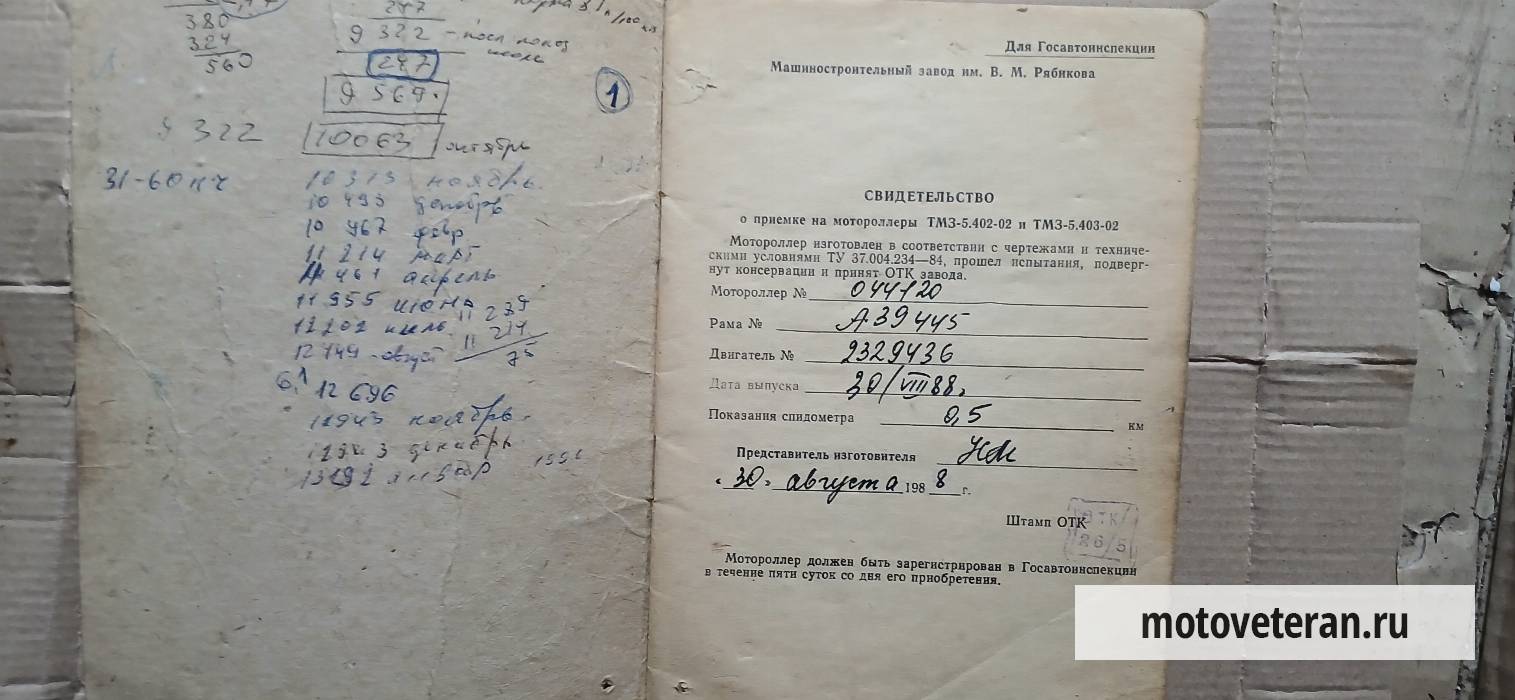 380
324
560
247
9 322 - посл показ
247
9 569.
1
9 322
10063 октябрь
31-60 км
10313 ноябрь.
10 493 декабрь
10 967 февр
11 214 март
11 461 апрель
11 955 июнь
11 239
12202 июль
11 214
75
12 449 - август
6,1
12 696
12943 ноябрь.
декабрь
Для Госавтоинспекции
Машиностроительный завод им. В. М. Рябикова
СВИДЕТЕЛЬСТВО
о приемке на мотороллеры ТМЗ-5.402-02 и ТМЗ-5.403-02
Мотороллер изготовлен в соответствии с чертежами и техниче-
скими условиями ТУ 37.004.234—84, прошел испытания, подверг-
нут консервации и принят ОТК завода.
Мотороллер № 044120
Рама № А39445
Двигатель № 2329436
Дата выпуска 30/VIII 88.
Показания спидометра 0,5 км
Представитель изготовителя
«30» августа 1988 г.
Штамп ОТК
ОТК
26/5
Мотороллер должен быть зарегистрирован в Госавтоинспекции
в течение пяти суток со дня его приобретения.
motoveteran.ru